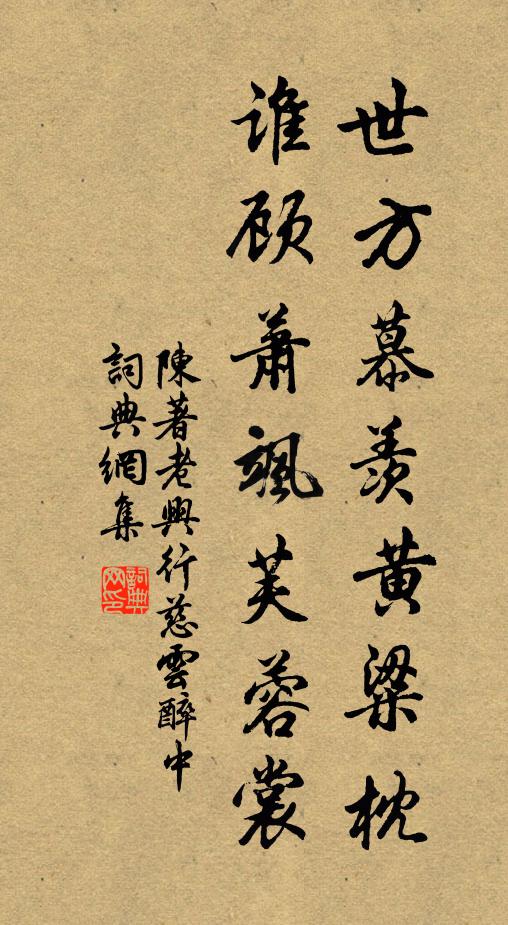 世方慕羡黄梁枕
谁顾萧飒芙蓉裳
陳著老興行慈雲醉中
詞典網集
詞典网印